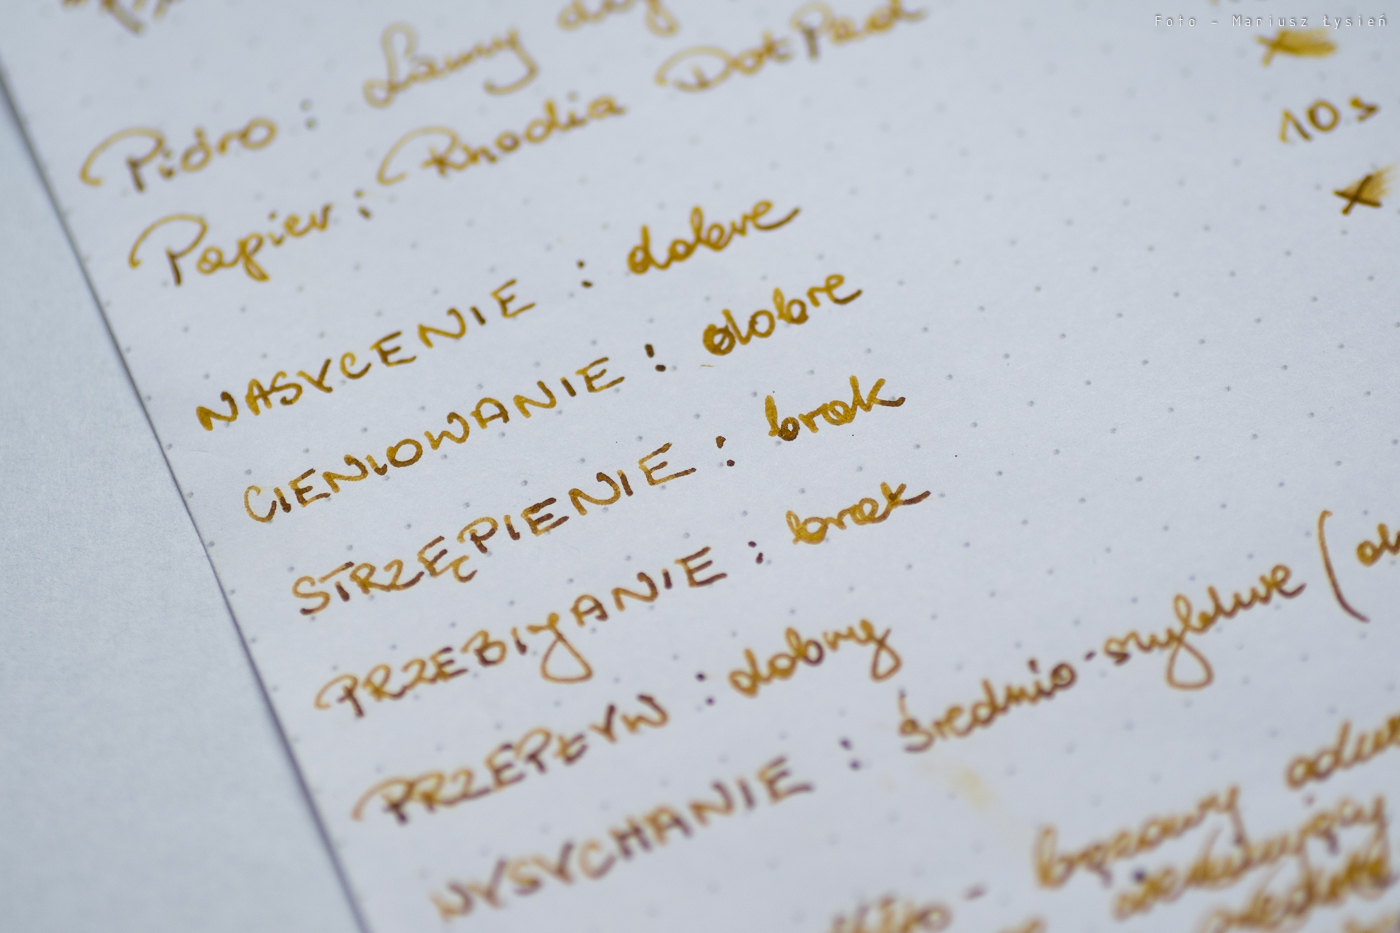 Foto - Mariusz Łysień
Pióro : Lamy
Papier : Rhodia DotPad
10s
NASYCENIE : dobre
CIENIOWANIE : dobre
STRZĘPIENIE : brak
PRZEBIJANIE : brak
PRZEPŁYW : dobry
WYSYCHANIE : średnio-szybkie (
brązowy